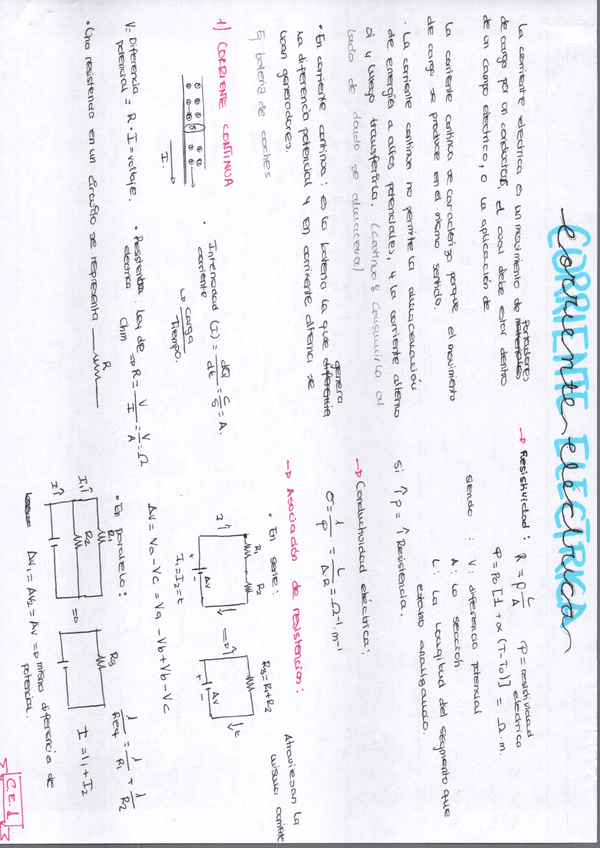 CORRIENTE ELÉCTRICA
Corriente eléctrica
La corriente eléctrica es un movimiento de portadores
de carga por un conductor, el cual debe estar dentro
de un campo eléctrico, o la aplicación de
La corriente continua se caracteriza porque el movimiento
de carga se produce en el mismo sentido.
· La corriente continua no permite la almacenación
de energía a altos potenciales, y la corriente alterna
si y luego transferirla. (Continua: consumirla al
lado de donde se almacena)
• En corriente continua: es la batería la que genera
la diferencia potencial y en corriente alterna se
usan generadores.
Ej batería de coches
1) CORRIENTE CONTINUA
I.
· Intensidad (I) = dQ/dt = C/S = A.
corriente
↳ carga
tiempo.
V = Diferencia
potencial = R · I = voltaje.
• Resistencia
eléctrica
Ley de
Ohm
=> R = V/I = V/A = Ω
• Una resistencia en un circuito se representa
R
→ Resistividad: R = ρ L/A
ρ = resistividad
eléctrica
ρ = ρ0 [1 + α (T - T0)] = Ω · m.
siendo: V: diferencia potencial
A: la sección
L: la longitud del segmento que
estamos analizando.
Si ↑ρ = ↑ Resistencia.
→ Conductividad eléctrica:
σ = 1/ρ = L/AR = Ω⁻¹ · m⁻¹
→ Asociación de resistencias:
• En serie:
Atraviesan la
misma corriente
R1 R2
I↑
+ ΔV -
=>
Rg = R1 + R2
+ ΔV -
I1 = I2 = I
ΔV = Va - Vc = Va - Vb + Vb - Vc
• En paralelo:
1/Req = 1/R1 + 1/R2
R1
R2
I1↑
I↑
=>
Rg
I = I1 + I2
ΔV1 = ΔV2 = ΔV => misma diferencia de
potencial.
C.E.1